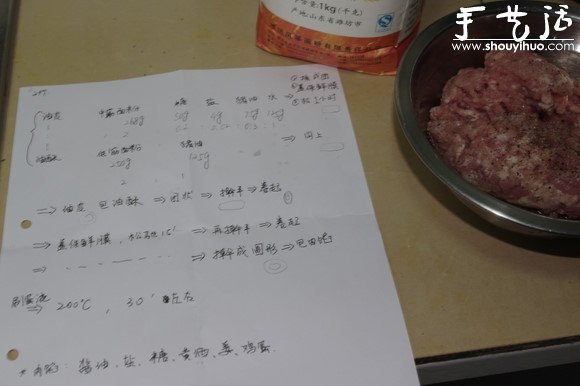 1kg(千克)
产地:山东省潍坊市
手艺活
www.shouyihuo.com
糖 盐 猪油 水 ⇒ ①揉成团
②盖保鲜膜
油皮 中筋面粉
4g
油酥 低筋面粉 猪油 ⇒ 同上
250g 125g
⇒ 油皮包油酥 ⇒ 团状 ⇒ 擀平 ⇒ 卷起
⇒ 盖保鲜膜,松弛15' ⇒ 再擀平 ⇒ 卷起
⇒ 擀成圆形 ⇒ 包肉馅
刷蛋液
⇒ 200℃, 30' 左右
肉馅: 酱油、盐、糖、黄酒、姜、鸡蛋